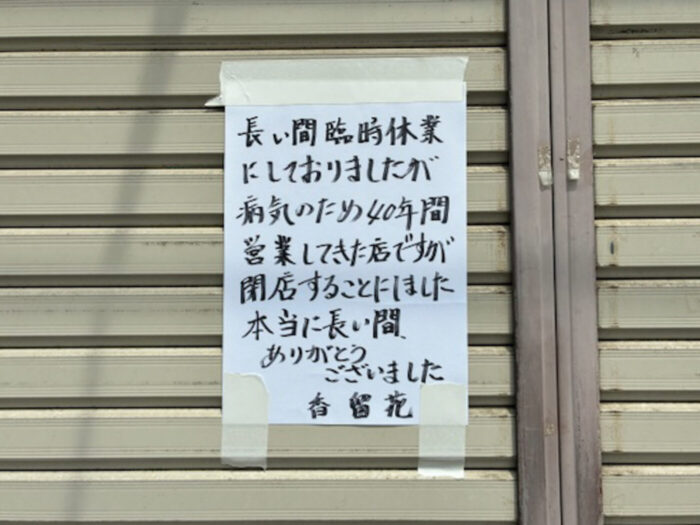 長い間臨時休業
にしておりましたが
病気のため40年間
営業してきた店ですが
閉店することにしました
本当に長い間、
ありがとう
ございました
香留苑